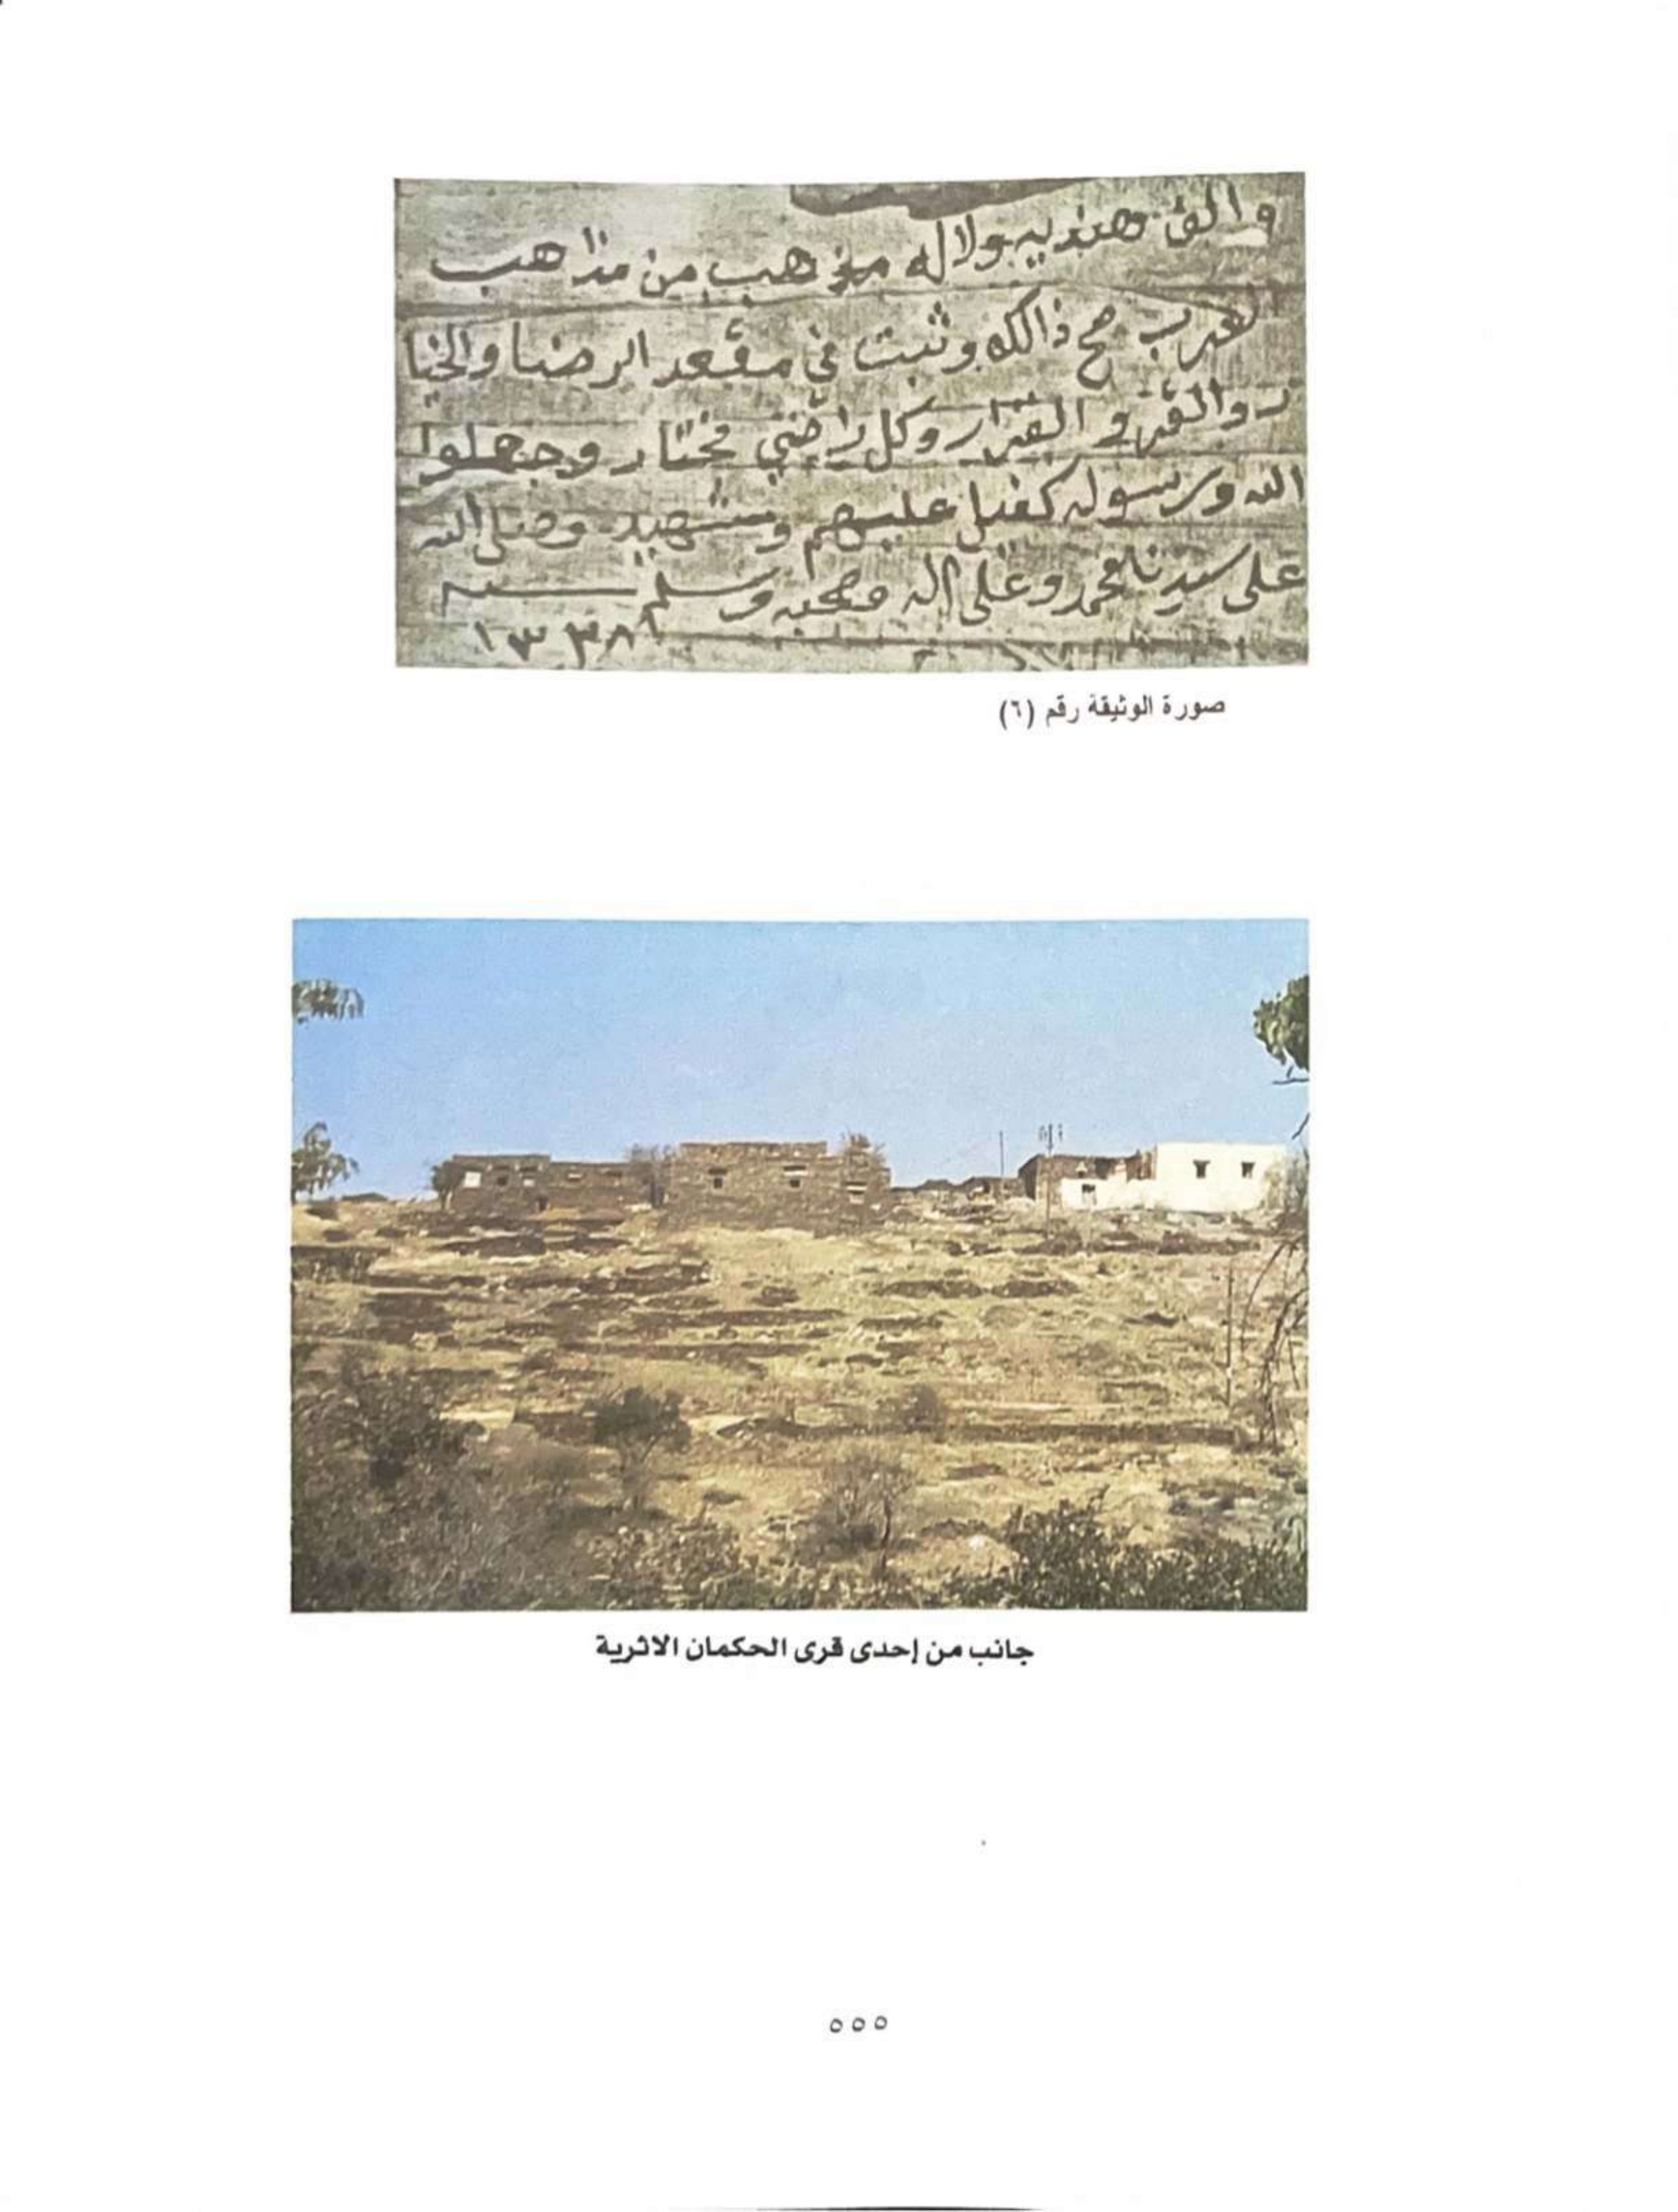 والف هنديه ولا له مذهب من مذاهب
لعرب صح ذالك وثبت في مقعد الرضا والخيا
ر والقر والقرار وكل راضي مختار وجعلوا
الله ورسوله كفيل عليهم وشهيد وصلى الله
على سيدنا محمد وعلى اله وصحبه وسلم سنه
صورة الوثيقة رقم (٦)
جانب من إحدى قرى الحكمان الاثرية
٥٥٥